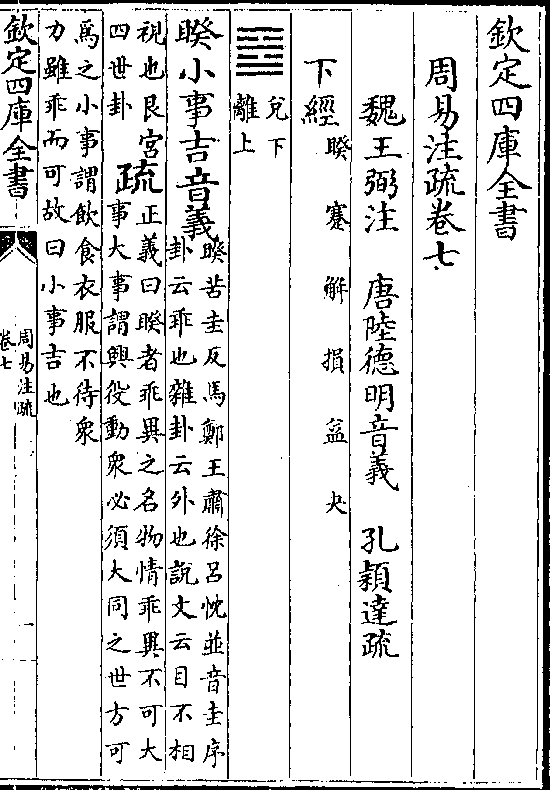 欽定四庫全書
周易注疏卷七
魏王弼注 唐陸德明音義 孔穎達疏
下經 睽 蹇 解 損 益 夬
兌下
離上
睽小事吉音義睽苦圭反馬鄭王肅徐呂忱並音圭序
卦云乖也雜卦云外也說文云目不相
視也艮宮
四世卦疏正義曰睽者乖異之名物情乖異不可大
事大事謂興役動衆必須大同之世方可
為之小事謂飲食衣服不待衆
力雖乖而可故曰小事吉也
欽定四庫全書
周易注疏
卷七